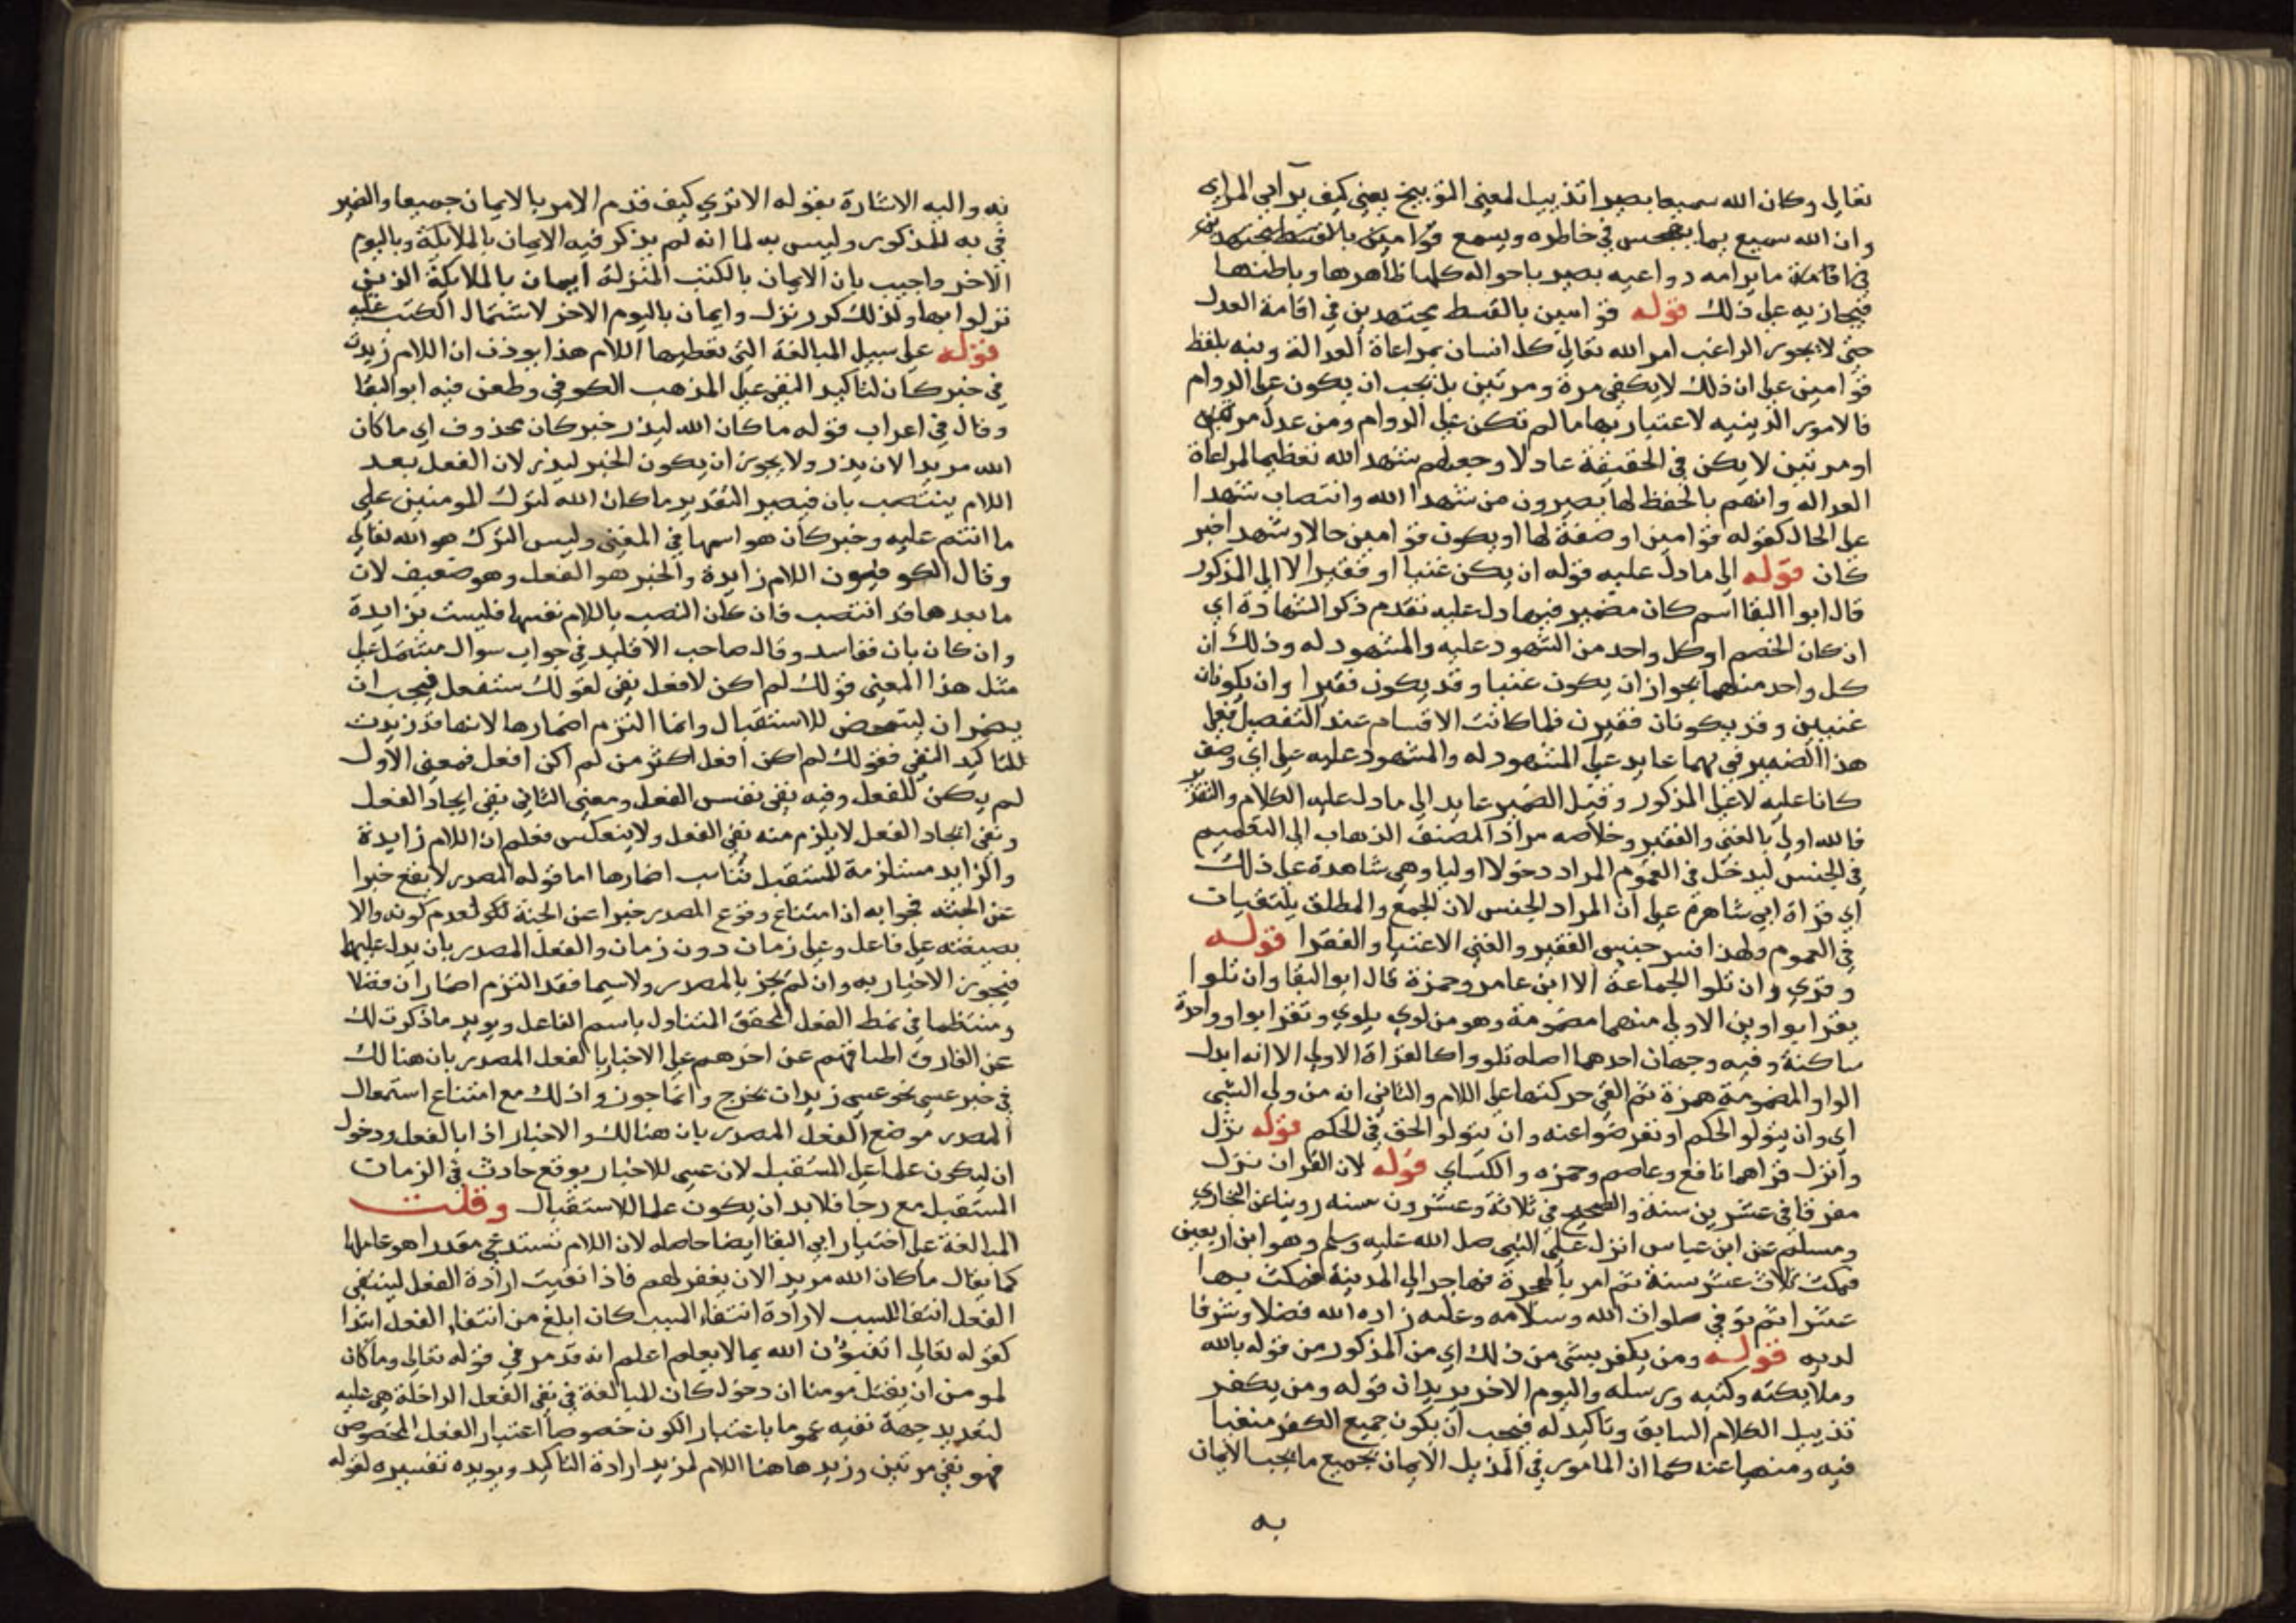 تعالى وكان الله سميعا بصيرا تذييل لمعنى التوبيخ يعنى كيف يرآبي المرايى
وان الله سميع بما يهجس في خاطره ويسمع قوامين بالقسط مجتهدين
في اقامة ما يرامه دواعيه بصير باحواله كلها ظاهرها وباطنها
فيجازيه على ذلك قوله قوامين بالقسط مجتهدين في اقامة العدل
حتى لا يجوروا الراغب امر الله تعالى كل انسان بمراعاة العدالة ونبه بلفظ
قوامين على ان ذلك لا يكفي مرة ومرتين بل يجب ان يكون على الدوام
فالامور الدينيه لا اعتبار بها ما لم تكن على الدوام ومن عدل مرة
او مرتين لا يكن في الحقيقة عادلا وجعلهم شهد الله تعظيما لمراعاة
العداله وانهم بالحفظ لها يصيرون من شهدا الله وانتصاب شهدا
على الحال كقوله قوامين او صفة لها او يكون قوامين حالا وشهدا خبر
كان قوله الى ما دل عليه قوله ان يكن غنيا او فقيرا لا الى المذكور
قال ابوا البقا اسم كان مضمير فيها دل عليه تقدم ذكر الشهادة اي
ان كان الخصم او كل واحد من الشهود عليه والمشهود له وذلك ان
كل واحد منهما يجواز ان يكون غنيا وقد يكون فقيرا وان يكونان
غنيين وقد يكونان فقيرن فلما كانت الاقسام عند التفصيل فعلى
هذا الضمير في بهما عايد على المشهود له والمشهود عليه على اي وصف
كانا عليه لا على المذكور وقيل الضمير عايد الى ما دل عليه الكلام والتقدير
فالله اولى بالغنى والفقير وخلاصه مراد المصنف الذهاب الى التعميم
في الجنس ليدخل في العموم المراد دخولا اوليا وهي شاهدة على ذلك
اي قراة ابي شاهرة على ان المراد الجنس لان الجمع والمطلق يلتقيات
في العموم ولهذا فسر جنسي الفقير والغني الاغنيا والفقرا قوله
وقري وان تلوا الجماعة الا ابن عامر وحمزة قال ابو البقا وان تلوا
يقرا بواوين الاولى منهما مضمومة وهو من لوي يلوي وتقرا بواو واحدة
ساكنة وفيه وجهان احدهما اصله تلووا كالقراة الاولى الا انه ابدل
الواو المضمومة همزة ثم القى حركتها على اللام والثاني انه من ولي الشي
اي وان يتولو الحكم او تعرضوا عنه وان يتولو الحق في الحكم قوله نزل
وأنزل قراهما نافع وعاصم وحمزه والكساي قوله لان القران نزل
مفرقا في عشرين سنة والصحيح في ثلاثة وعشرون سنه روينا عن البخاري
ومسلم عن ابن عباس انزل على النبي صل الله عليه وسلم وهو ابن اربعين
فمكث ثلاث عشر سنة ثم امر بالهجرة فهاجر الى المدينة فمكث بها
عشرا ثم توفي صلوات الله وسلامه وعليه زاده الله فضلا وشرفا
لديه قوله ومن يكفر بشى من ذلك اي من المذكور من قوله بالله
وملايكته وكتبه ورسله واليوم الاخر يريد ان قوله ومن يكفر
تذييل الكلام السابق وتاكيد له فيجب ان يكون جميع الكفر منفيا
فيه ومنهيا عنه كما ان المامور في المذيل الايمان بجميع ما يجب الايمان
به
به واليه الاشارة بقوله الا تري كيف قدم الامر بالايمان جميعا والضمير
في به للمذكور وليس به لما انه لم يذكر فيه الايمان بالملايكة وباليوم
الاخر واجيب بان الايمان بالكتب المنزلة ايمان بالملايكة الذين
نزلوا بها ولذلك كرر نزل وايمان باليوم الاخر لاشتمال الكتب عليه
قوله على سبيل المبالغة التي تعطيها اللام هذا يوذن ان اللام زيدت
في خبر كان لتاكيد النفي على المذهب الكوفي وطعن فيه ابو البقا
وقال في اعراب قوله ما كان الله ليذر خبر كان محذوف اي ما كان
الله مريدا لان يذر ولا يجوز ان يكون الخبر ليذر لان الفعل بعد
اللام ينتصب بان فيصير التقدير ما كان الله لترك المومنين على
ما انتم عليه وخبر كان هو اسمها في المعنى وليس الترك هو الله تعالى
وقال الكوفيون اللام زايدة والخبر هو الفعل وهو ضعيف لان
ما بعدها قد انتصب فان كان النصب باللام نفسها فليست بزايدة
وان كان بان ففاسد وقال صاحب الاقليد في جواب سوال مشتمل على
مثل هذا المعنى قولك لم اكن لافعل نفي لقولك ستفعل فيجب ان
يضمر ان ليتمحض للاستقبال وانما التزم اضمارها لانها قد زيدت
للتاكيد النفي فقولك لم اكن افعل اكثر من لم اكن افعل فمعنى الاول
لم يكن للفعل وفيه نفي نفس الفعل ومعنى الثاني نفي ايجاد الفعل
ونفي ايجاد الفعل لا يلزم منه نفي الفعل ولا ينعكس فعلم ان اللام زايدة
والزايد مستلزمة للمستقبل فناسب اضمارها اما قوله المصدر لا يقع خبرا
عن الجثه فجوابه ان امتناع وقوع المصدر خبرا عن الجثة لكو لعدم كونه والا
بصيغته على فاعل وعلى زمان دون زمان والفعل المصدر بان يدل عليها
فيجوز الاخبار به وان لم يجز بالمصدر ولا سيما فقد التزم اضمار ان فضلا
ومنتظما في نمط الفعل المحقق المتناول باسم الفاعل ويويد ما ذكرت لك
عن الفارق اطباقهم عن اخرهم على الاخبار بالفعل المصدر بان هنالك
في خبر عسى نحو عسى زيد ان يخرج وانما جوزوا ذلك مع امتناع استعمال
المصدر موضع الفعل المصدر بان هنالك والاخبار اذا بالفعل ودخول
ان ليكون علما على المستقبل لان عسى للاخبار بوقع حادث في الزمات
المستقبل مع رجا فلا بد ان يكون علما للاستقبال وقلت
المبالغة على اختيار ابي البقا ايضا حاصله لان اللام تستدعي مقدرا هو عاملها
كما يقال ما كان الله مريدا لان يغفر لهم فاذا نفيت ارادة الفعل لينتفي
الفعل انتفا للسبب لارادة انتفاء السبب كان ابلغ من انتفاء الفعل ابتدا
كقوله تعالى اتنبؤن الله بما لا يعلم اعلم انه قد مر في قوله تعالى وما كان
لمومن ان يقتل مومنا ان دخول كان للمبالغة في نفي الفعل الداخلة هي عليه
لتعديد جهة نفيه عموما باعتبار الكون خصوصا اعتبار الفعل المخصوص
فهو نفي مرتين وزيد هاهنا اللام لمزيد ارادة التاكيد ويويده تفسيره لقوله